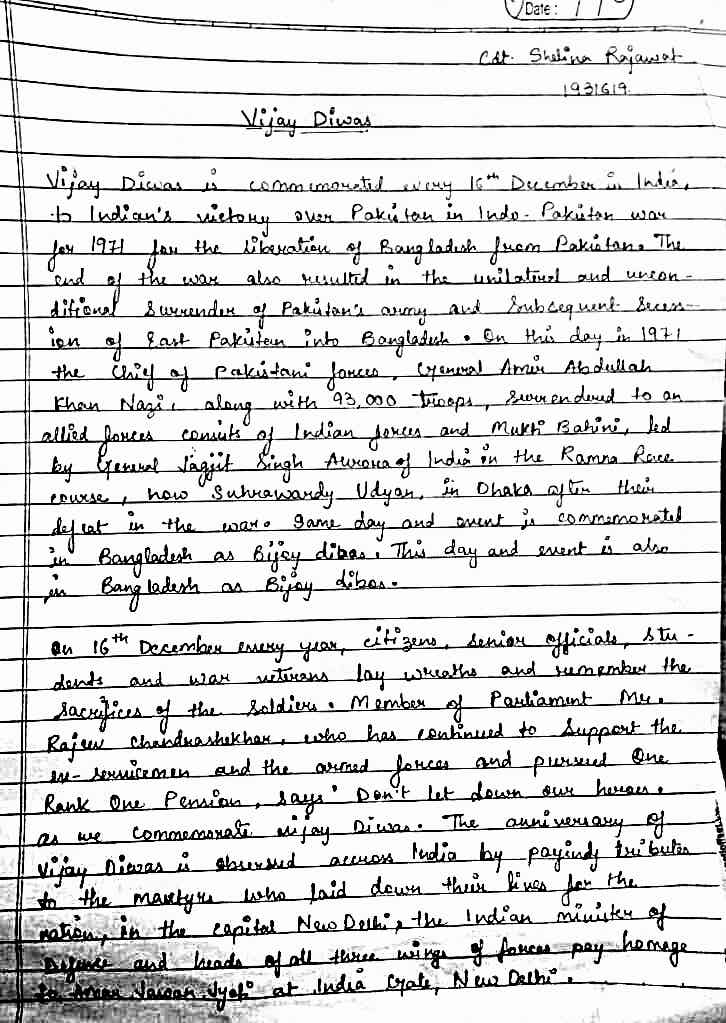 Date: / /
Cdt. Shelina Rajawat
1931619
Vijay Diwas
Vijay Diwas is commemorated every 16th December in India,
to Indian's victory over Pakistan in Indo-Pakistan war
for 1971 for the liberation of Bangladesh from Pakistan. The
end of the war also resulted in the unilateral and uncon-
ditional surrender of Pakistan's army and subsequent secess-
ion of East Pakistan into Bangladesh. On this day in 1971
the chief of Pakistani forces, General Amir Abdullah
Khan Nazi, along with 93,000 troops, surrendered to an
allied forces consists of Indian forces and Mukti Bahini, led
by General Jagjit Singh Aurora of India in the Ramna Race
course, now Suhrawardy Udyan, in Dhaka after their
defeat in the war. Same day and event is commemorated
in Bangladesh as Bijoy dibas. This day and event is also
in Bangladesh as Bijoy dibos.
On 16th December every year, citizens, senior officials, stu-
dents and war veterans lay wreaths and remember the
sacrifices of the soldiers. Member of Parliament Mr.
Rajeev Chandrashekhar, who has continued to support the
ex-servicemen and the armed forces and pursued One
Rank One Pension, says' Don't let down our heroes.
as we commemorate vijay Diwas. The anniversary of
Vijay Diwas is observed accross India by payindy tributes
to the martyrs who laid down their lives for the
nation, in the capital New Delhi, the Indian minister of
Defence and heads of all three wings of forces pay homage
to Amar Jawan Jyoti at India Gate, New Delhi.